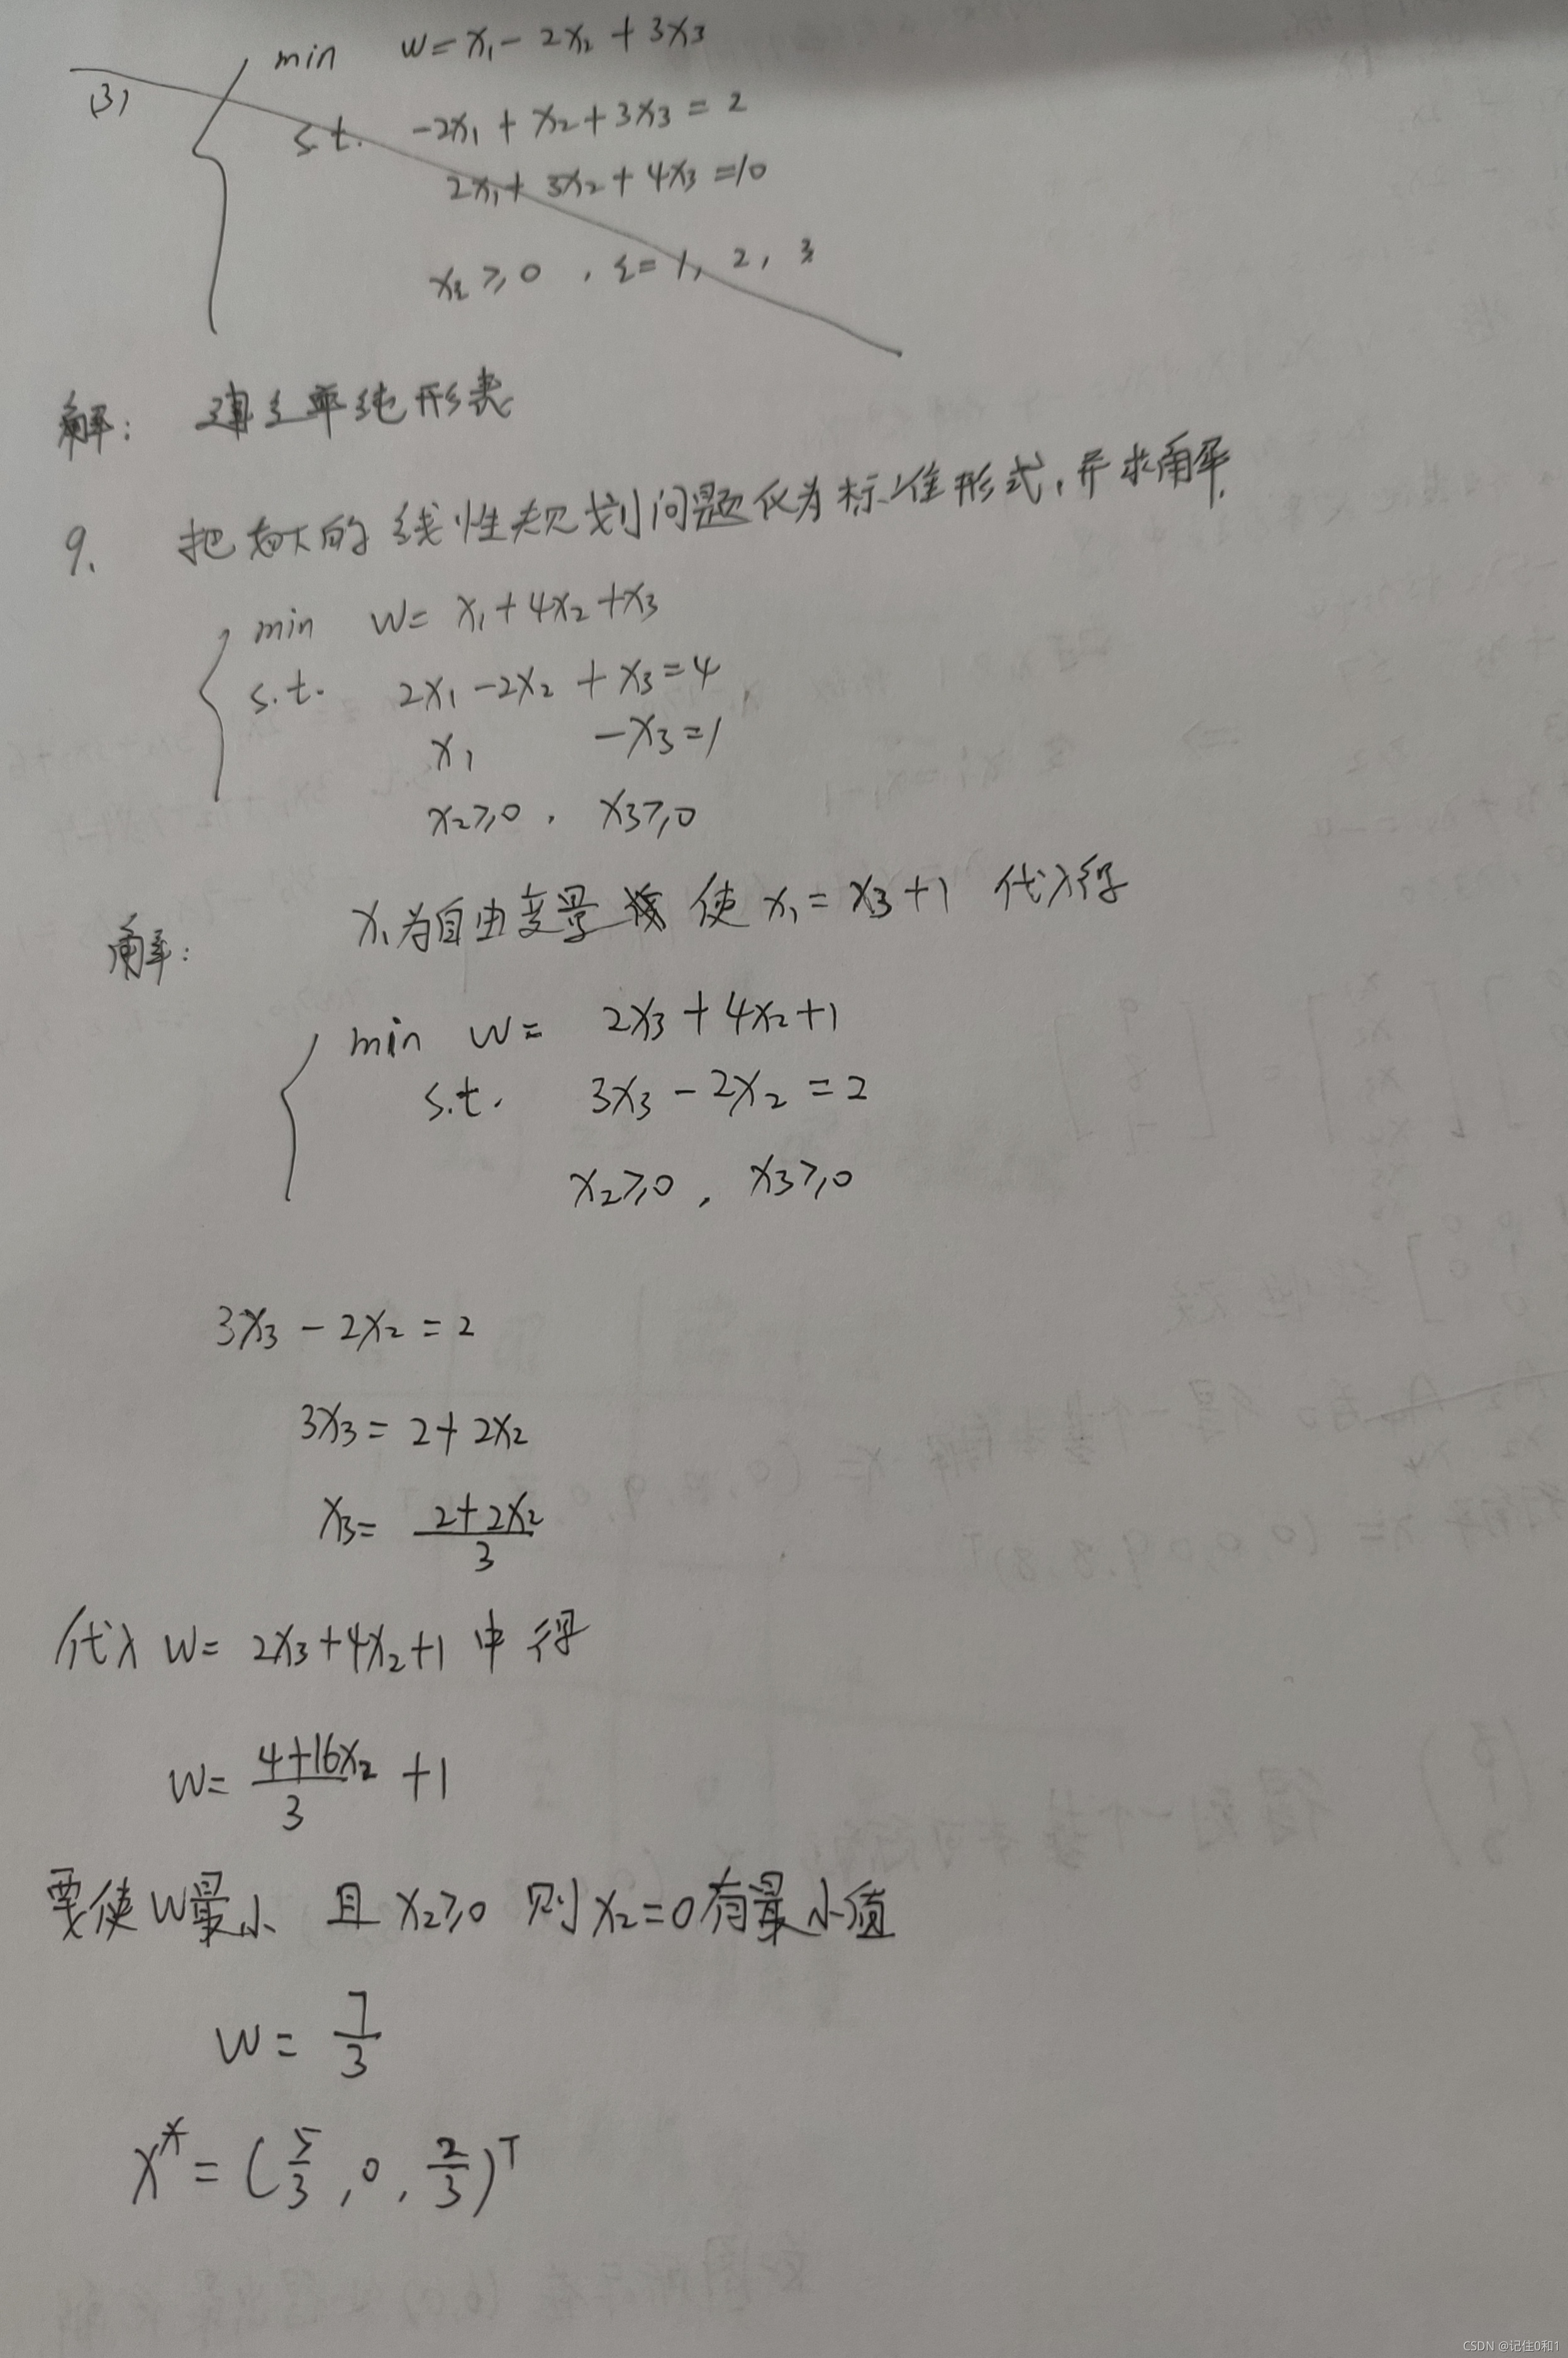 (3) min w=x₁-2x₂+3x₃
s.t. -2x₁+x₂+3x₃=2
2x₁+3x₂+4x₃=10
xᵢ≥0，i=1，2，3
解：建立单纯形表
9. 把如下的线性规划问题化为标准形式，并求解.
min w=x₁+4x₂+x₃
s.t. 2x₁-2x₂+x₃=4,
x₁ -x₃=1
x₂≥0，x₃≥0
解： x₁为自由变量 使x₁=x₃+1 代入得
min w=2x₃+4x₂+1
s.t. 3x₃-2x₂=2
x₂≥0，x₃≥0
3x₃-2x₂=2
3x₃=2+2x₂
x₃=(2+2x₂)/3
代入w=2x₃+4x₂+1中得
w=(4+16x₂)/3+1
要使w最小 且x₂≥0 则x₂=0有最小值
w=7/3
x*=(5/3,0,2/3)ᵀ
CSDN @记住0和1